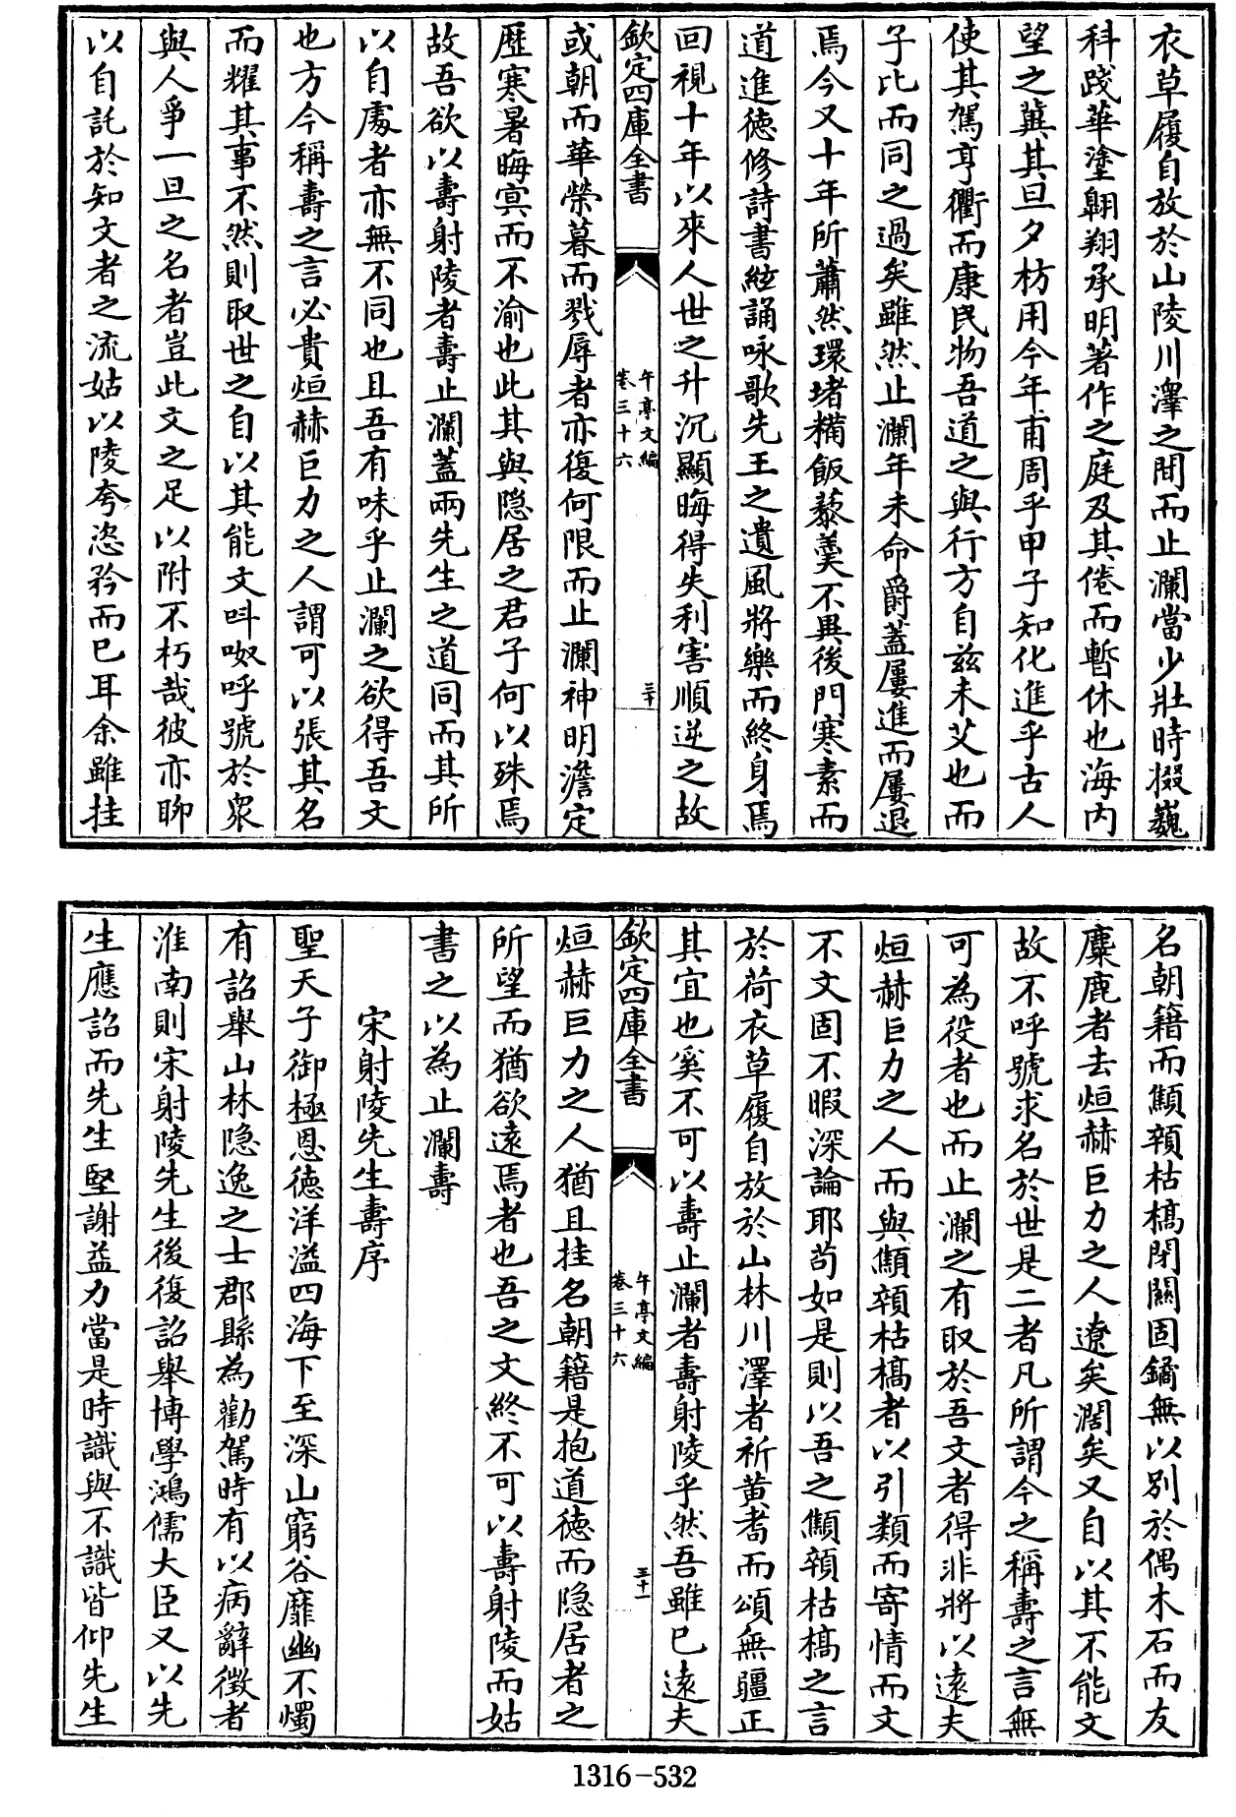 衣草履自放於山陵川澤之間而止瀾當少壯時掇巍
科踐華塗翺翔承明著作之庭及其倦而暫休也海内
望之冀其旦夕枋用今年甫周乎甲子知化進乎古人
使其駕亨衢而康民物吾道之與行方自兹未艾也而
子比而同之過矣雖然止瀾年未命爵蓋屢進而屢退
焉今又十年所蕭然環堵糒飯藜羮不異後門寒素而
道進徳修詩書絃誦咏歌先王之遺風將樂而終身焉
回視十年以來人世之升沉顯晦得失利害順逆之故
欽定四庫全書
午亭文編
卷三十六
三十
或朝而華榮暮而戮辱者亦復何限而止瀾神明澹定
歴寒暑晦㝠而不渝也此其與隐居之君子何以殊焉
故吾欲以壽射陵者壽止瀾蓋兩先生之道同而其所
以自處者亦無不同也且吾有味乎止瀾之欲得吾文
也方今稱壽之言必貴烜赫巨力之人謂可以張其名
而耀其事不然則取世之自以其能文呌呶呼號於衆
與人爭一旦之名者豈此文之足以附不朽哉彼亦聊
以自託於知文者之流姑以陵夸恣矜而已耳余雖挂
名朝籍而顦顇枯槁閉關固鐍無以别於偶木石而友
麋鹿者去烜赫巨力之人遼矣濶矣又自以其不能文
故不呼號求名於世是二者凡所謂今之稱壽之言無
可為役者也而止瀾之有取於吾文者得非將以逺夫
烜赫巨力之人而與顦顇枯槁者以引類而寄情而文
不文固不暇深論耶苟如是則以吾之顦顇枯槁之言
於荷衣草履自放於山林川澤者祈黄耇而頌無疆正
其宜也奚不可以壽止瀾者壽射陵乎然吾雖已逺夫
欽定四庫全書
午亭文編
卷三十六
三十一
烜赫巨力之人猶且挂名朝籍是抱道徳而隐居者之
所望而猶欲逺焉者也吾之文終不可以壽射陵而姑
書之以為止瀾壽
宋射陵先生壽序
聖天子御極恩徳洋溢四海下至深山窮谷靡幽不燭
有詔舉山林隐逸之士郡縣為勸駕時有以病辭徴者
淮南則宋射陵先生後復詔舉博學鴻儒大臣又以先
生應詔而先生堅謝益力當是時識與不識皆仰先生
1316-532